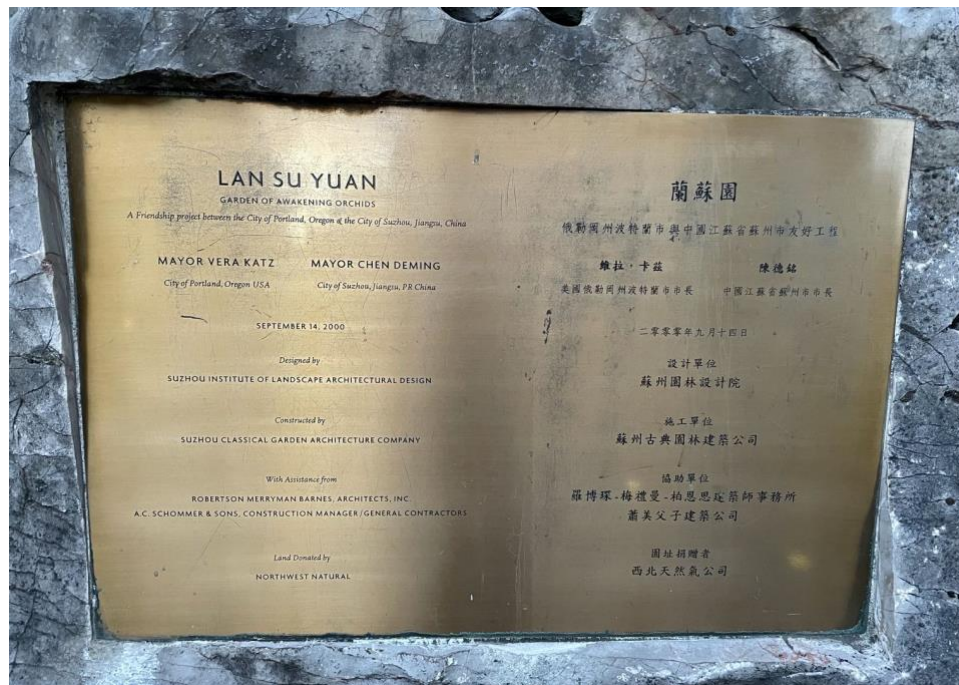 LAN SU YUAN
GARDEN OF AWAKENING ORCHIDS
A Friendship project between the City of Portland, Oregon & the City of Suzhou, Jiangsu, China
MAYOR VERA KATZ
City of Portland, Oregon USA
MAYOR CHEN DEMING
City of Suzhou, Jiangsu, PR China
SEPTEMBER 14, 2000
Designed by
SUZHOU INSTITUTE OF LANDSCAPE ARCHITECTURAL DESIGN
Constructed by
SUZHOU CLASSICAL GARDEN ARCHITECTURE COMPANY
With Assistance from
ROBERTSON MERRYMAN BARNES, ARCHITECTS, INC.
A.C. SCHOMMER & SONS, CONSTRUCTION MANAGER/GENERAL CONTRACTORS
Land Donated by
NORTHWEST NATURAL
蘭蘇園
俄勒岡州波特蘭市與中國江蘇省蘇州市友好工程
維拉·卡茲
美國俄勒岡州波特蘭市市長
陳德銘
中國江蘇省蘇州市市長
二零零零年九月十四日
設計單位
蘇州園林設計院
施工單位
蘇州古典園林建築公司
協助單位
羅博琛-梅禮曼-柏恩思建築師事務所
蕭美父子建築公司
園址捐贈者
西北天然氣公司